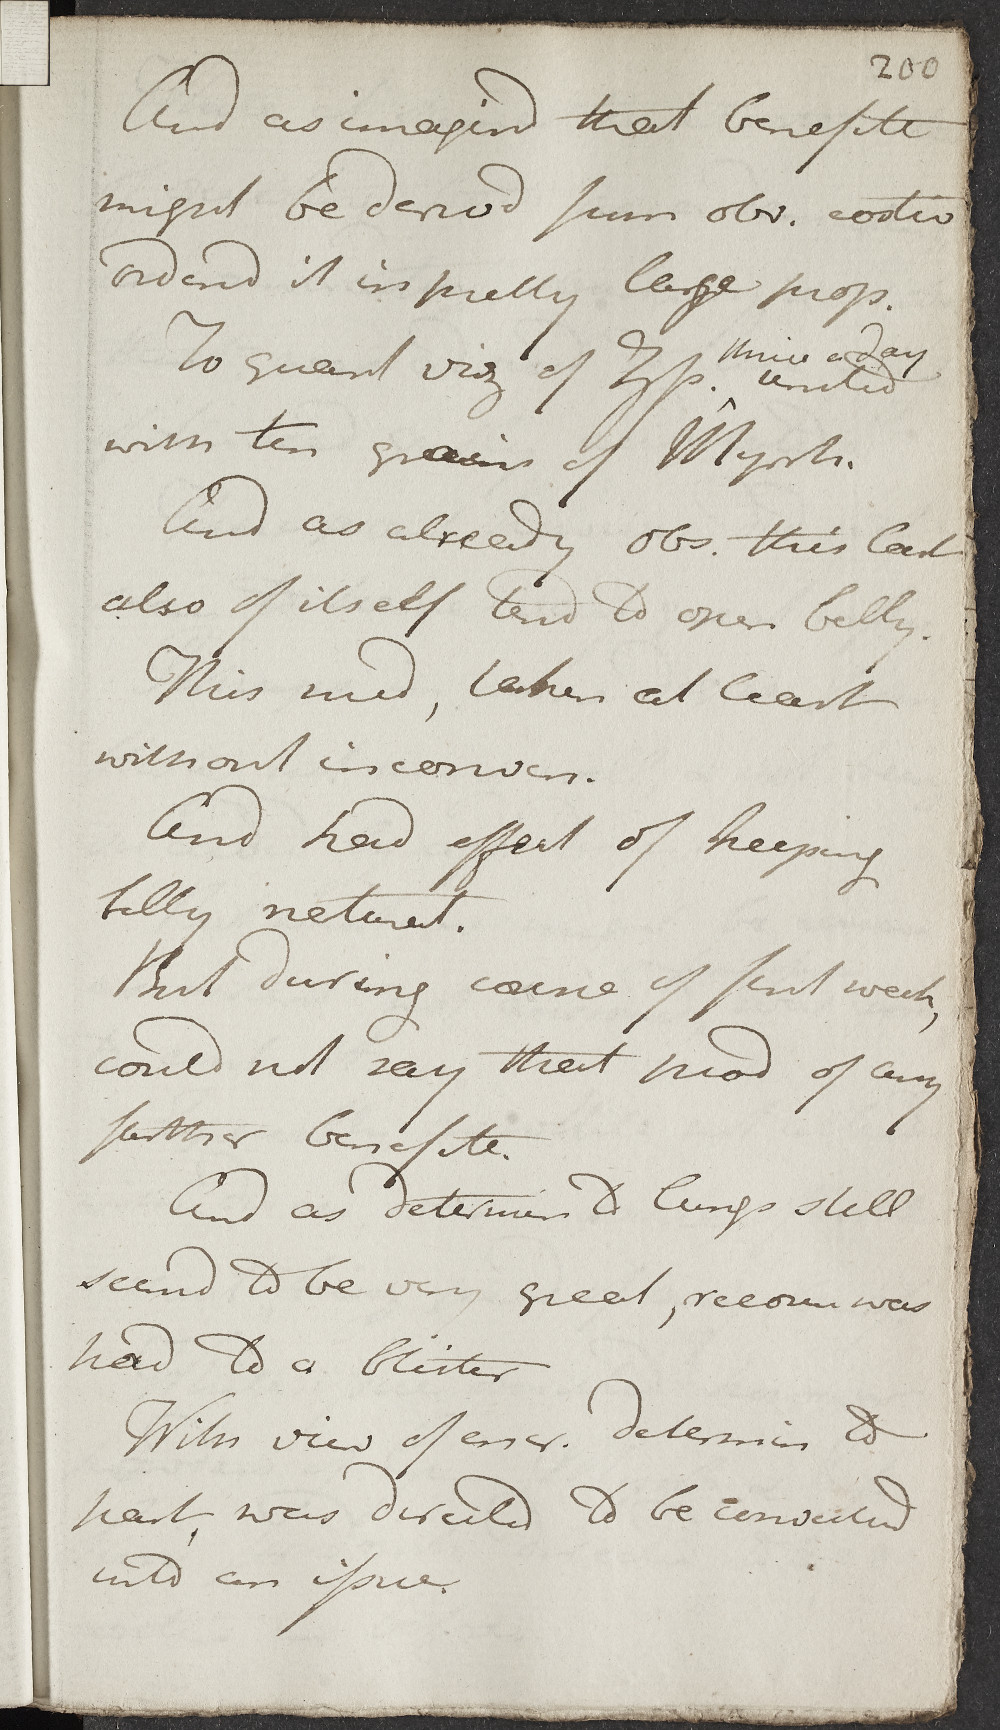 200
And as imagind that benefite
might be derivd from obv. costiv
ordend it in pretty large prop.
thrice a day
To quant viz of ʒſs. united
with ten grains of Myrrh.
And as already obs. this last
also of itself tend to open belly.
This med, taken at least
without inconven.
And had effect of keeping
belly natural.
But during course of first week,
could not say that prod of any
further benefite.
And as determin to lungs still
seemd to be very great, recour was
had to a blister
With view of encr. determin to
part, was directed to be converted
into an issue.